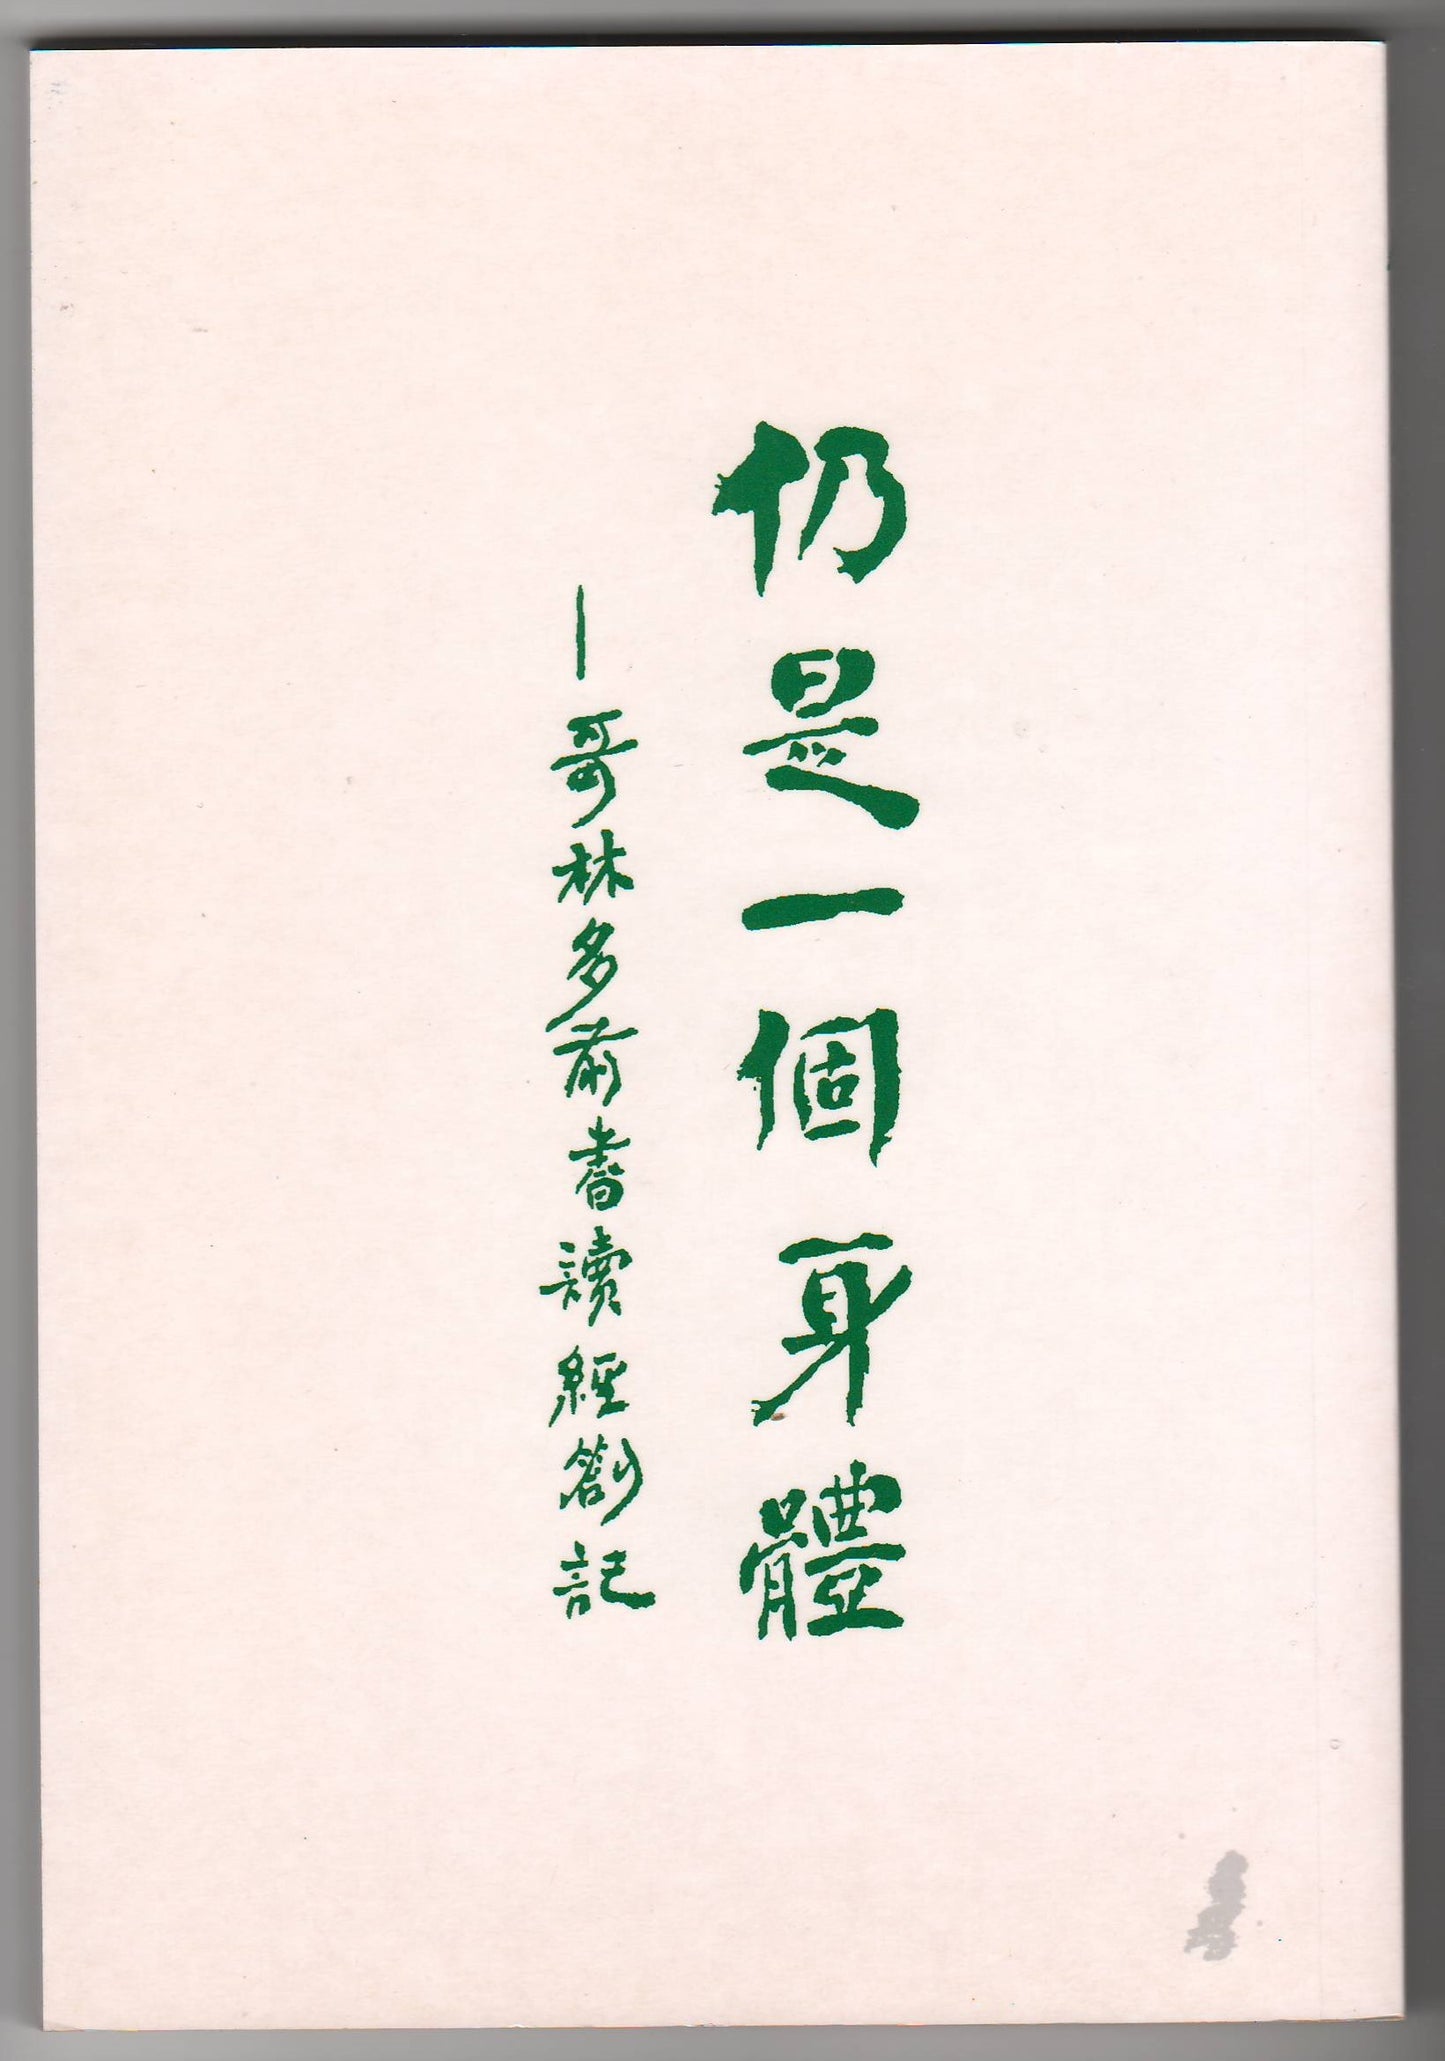 仍是一個身體
—哥林多前書讀經劄記